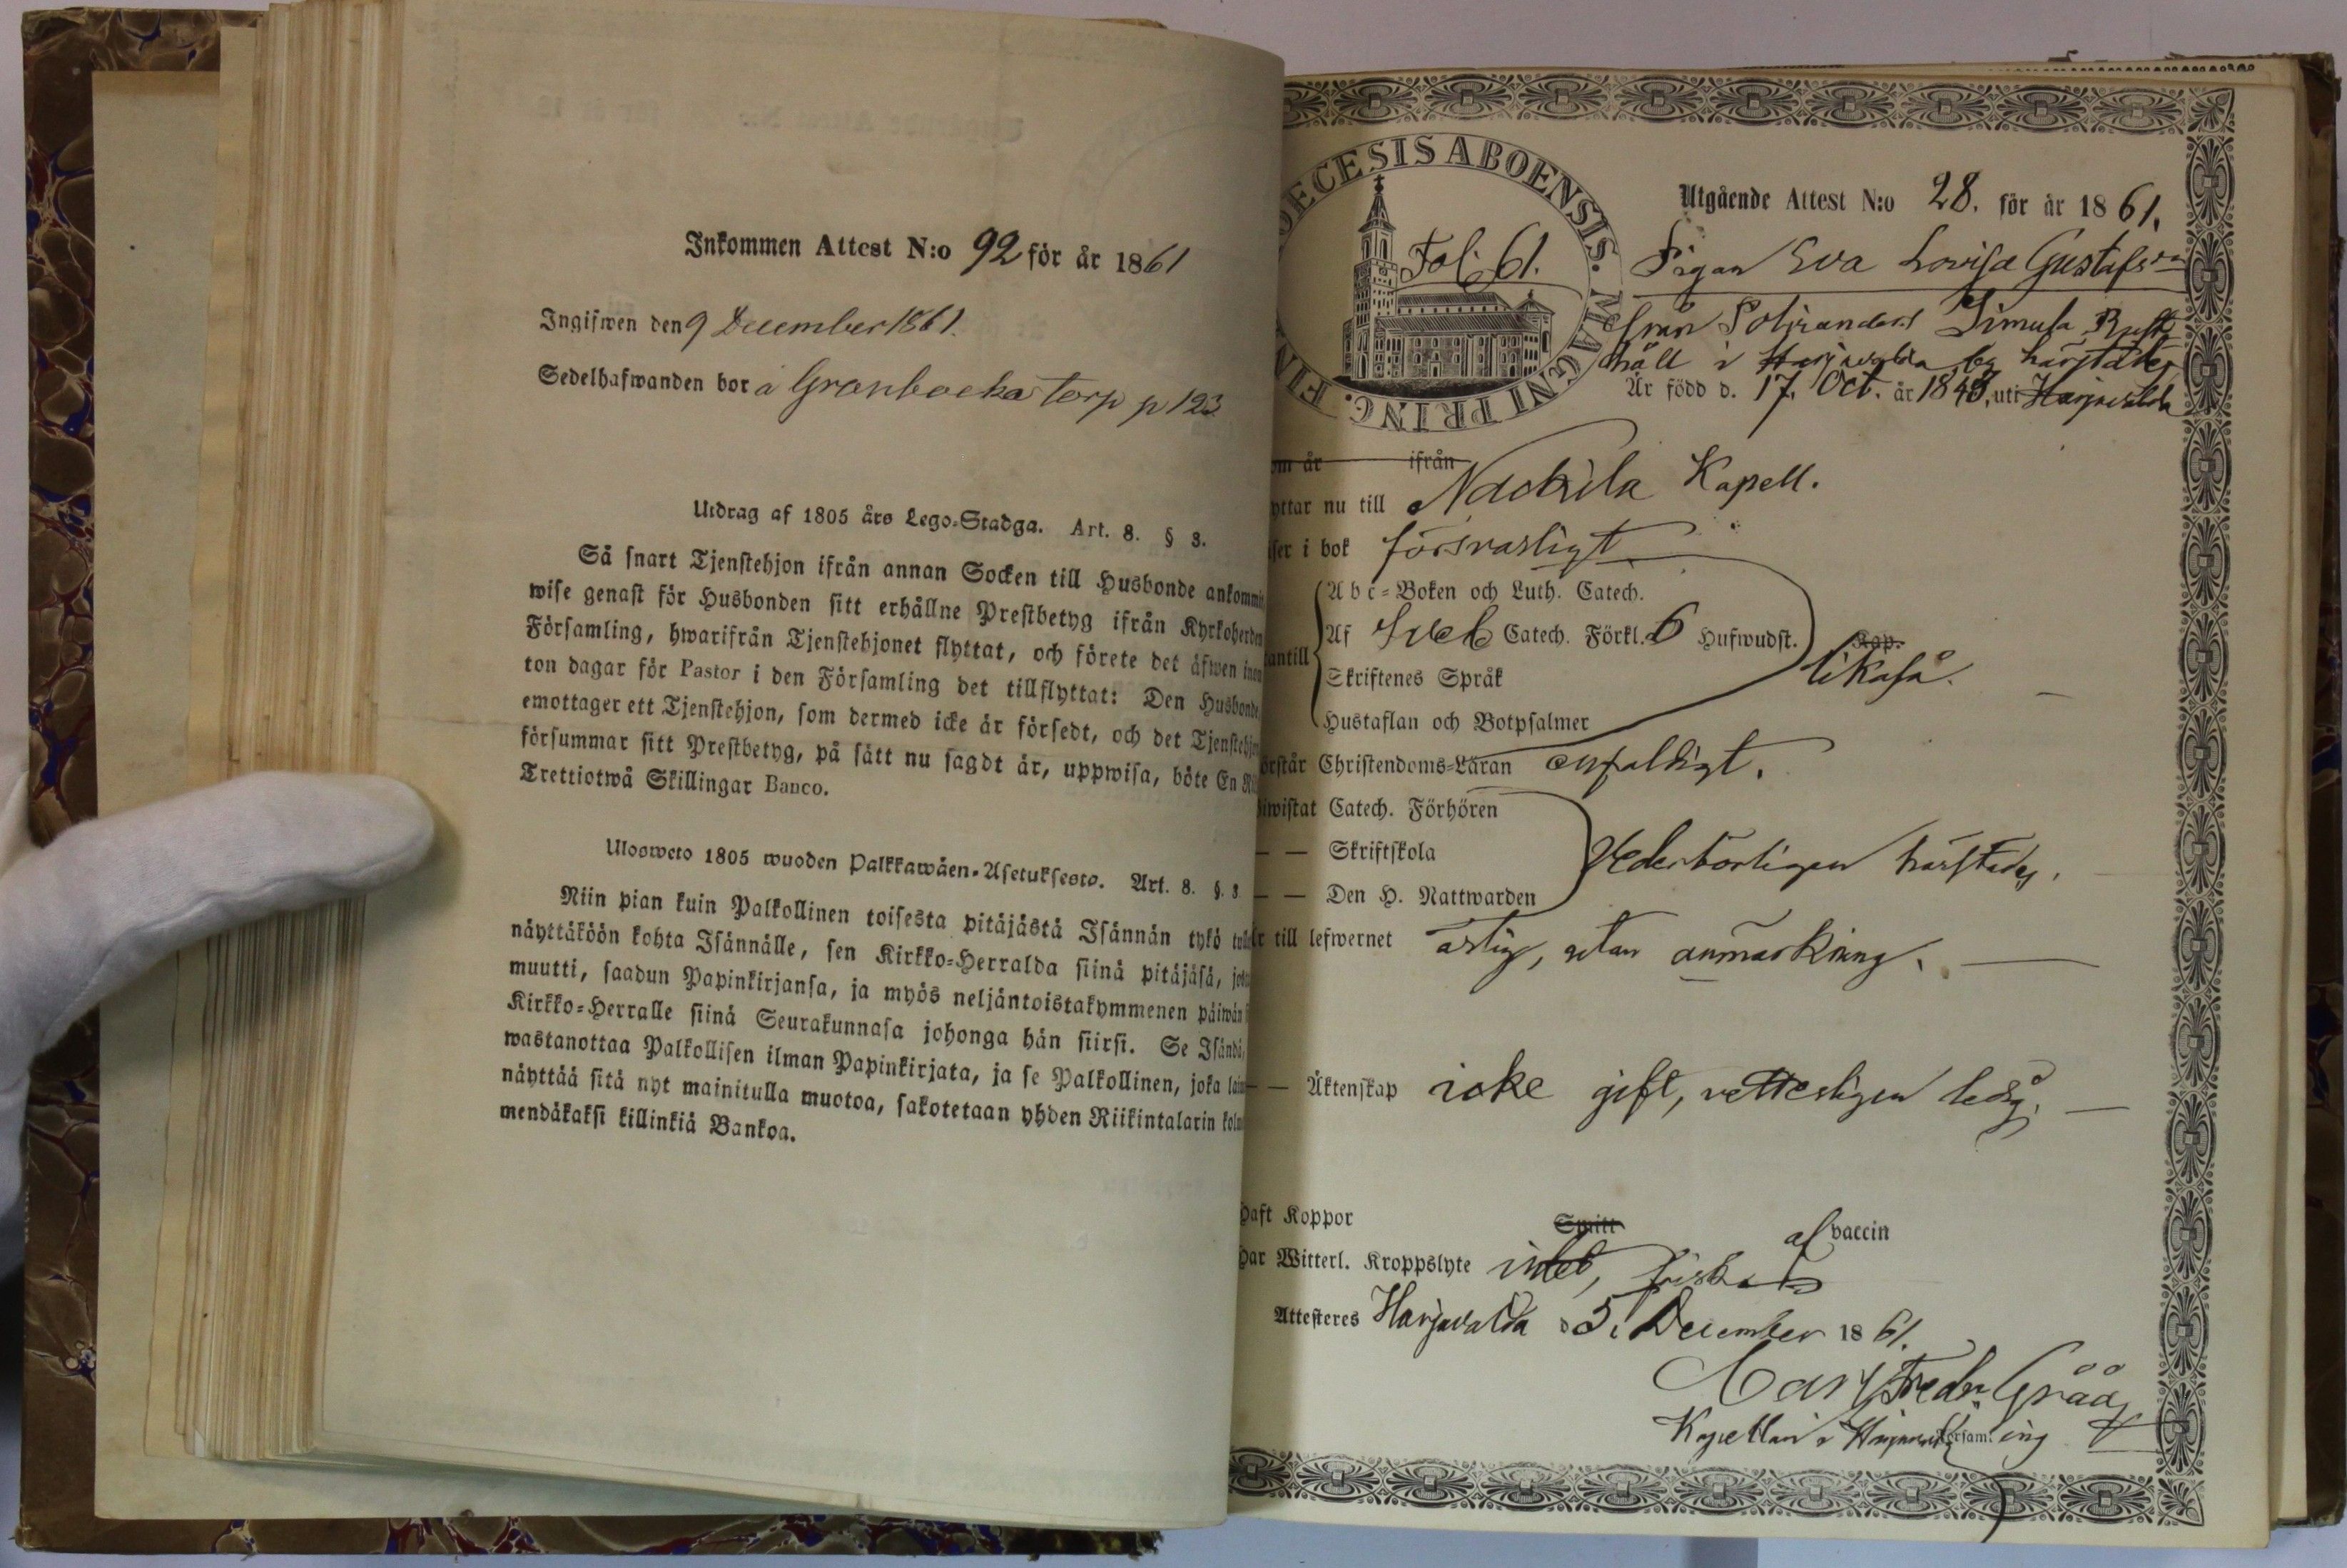 Inkommen Attest N:o 92 för år 1861
Ingifwen den 9 December 1861.
Sedelhafwanden bor å Gronbacka torp p 123
Utdrag af 1805 års Lego-Stadga. Art. 8. § 3.
Så snart Tjenstehjon ifrån annan Socken till Husbonde ankommit
wise genast för Husbonden sitt erhållne Prestbetyg ifrån Kyrkoherden
Församling, hwarifrån Tjenstehjonet flyttat, och förete det äfwen inom
ton dagar för Pastor i den Församling det tillflyttat: Den Husbonde,
emottager ett Tjenstehjon, som dermed icke är försedt, och det Tjenstehjon
försummar sitt Prestbetyg, på sätt nu sagdt är, uppwisa, böte En
Trettiotwå Skillingar Banco.
Ulosweto 1805 wuoden Palkkawäen-Asetuksesta. Art. 8. §. 3
Niin pian kuin Palkollinen toisesta pitäjästä Isännän tykö
näyttäköön kohta Isännälle, sen Kirkko-Herralda siinä pitäjäsä,
muutti, saadun Papinkirjansa, ja myös neljäntoistakymmenen päiwän
Kirkko-Herralle siinä Seurakunnasa johonga hän siirsi. Se Isändä,
wastanottaa Palkollisen ilman Papinkirjata, ja se Palkollinen, joka
näyttää sitä nyt mainitulla muotoa, sakotetaan yhden Riikintalarin
mendäkaksi killinkiä Bankoa.
DECESIS ABOENSIS. MAGNI PRINC. FIN
Fol. 61.
Utgående Attest N:o 28. för år 1861.
Pigan Eva Lovisa Gustafsdr
från Simula Rust
håll i Harjavalda, härstädes
Är född d. 17. Oct. år 1843, uti Harjavalda
om år ifrån
yttar nu till Nackila Kapell.
ser i bok försvarligt
Abc-Boken och Luth. Catech.
antill Af Sveb Catech. Förkl. 6 Hufwudst. Kap.
likaså.
Skriftenes Språk
Hustaflan och Botpsalmer
örstår Christendoms-Läran enfaldigt.
iwistat Catech. Förhören
— — Skriftskola Vederbörligen härstädes.
— — Den H. Nattwarden
r till lefwernet ärlig, utan anmärkning.
— — Äktenskap icke gift, vetterligen ledig.
Haft Koppor Smitt af vaccin
Har Witterl. Kroppslyte intet, frisk
Attesteres Harjavalda d 5. December 1861.
Carl Fredr. Gråå
Kapellan i Harjavalda Församling